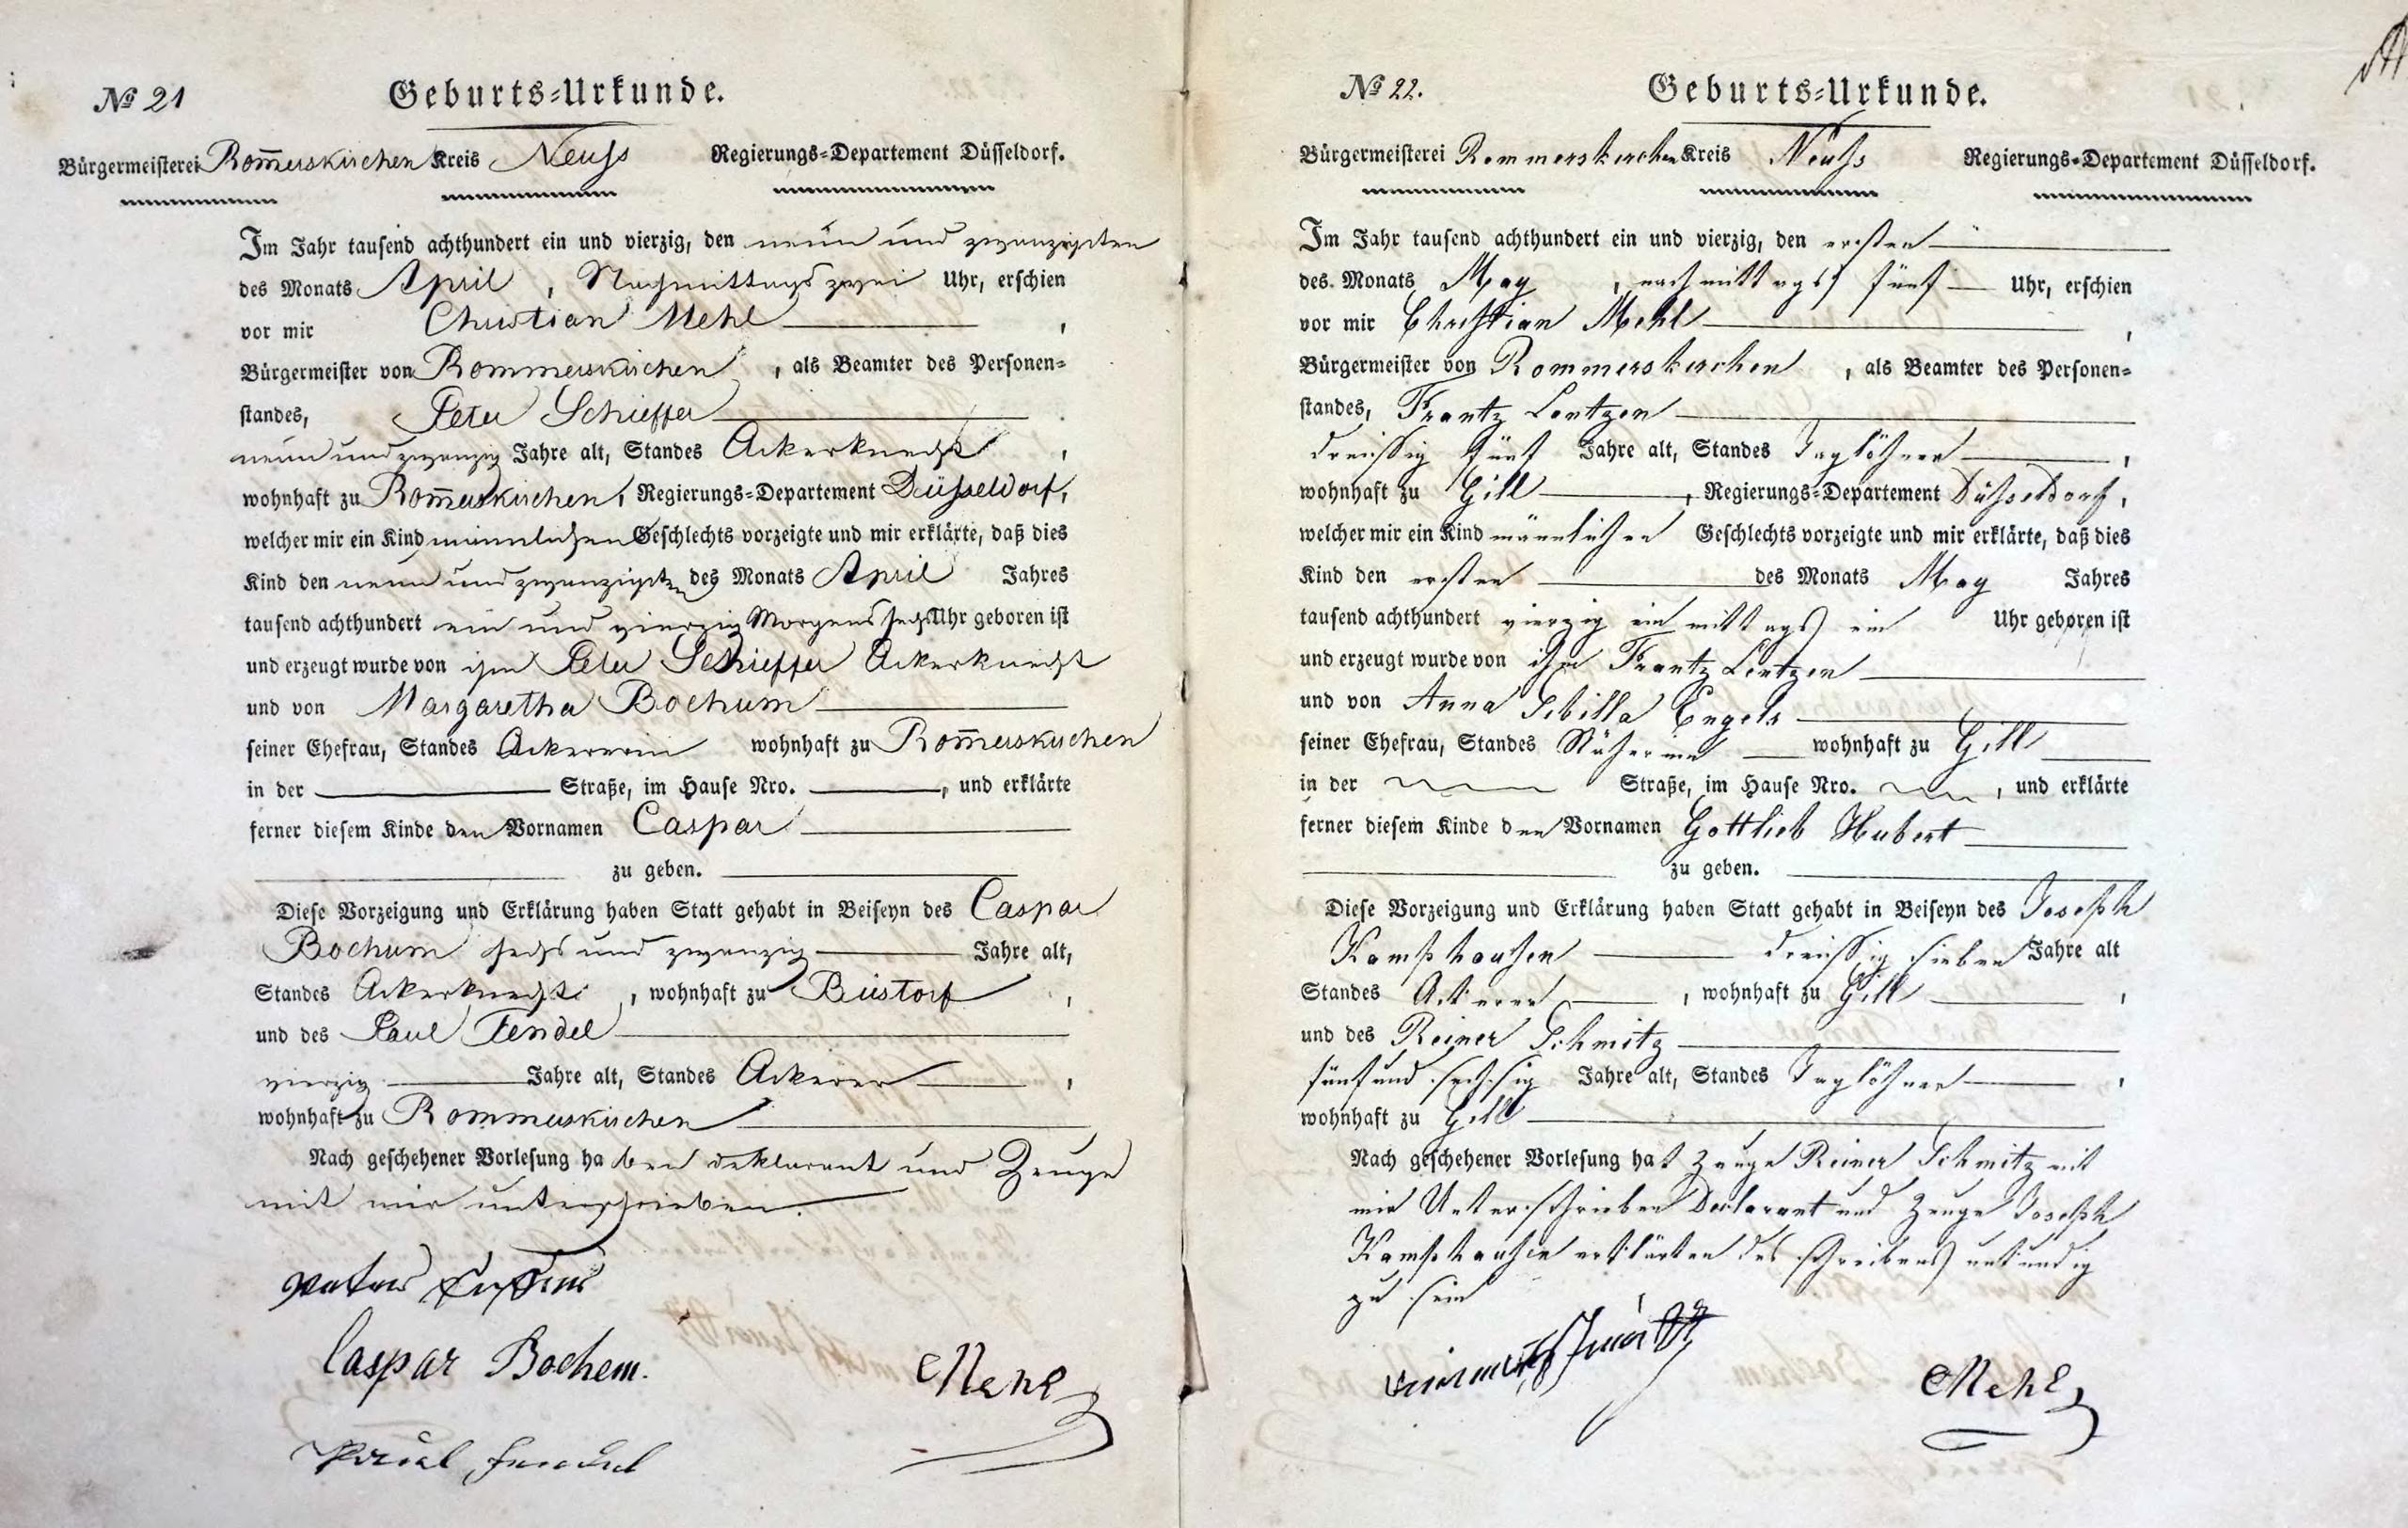 № 21
Geburts-Urkunde.
Bürgermeisterei Rom̅erskirchen Kreis Neuss Regierungs-Departement Düsseldorf.
Im Jahr tausend achthundert ein und vierzig, den neun und zwanzigsten
des Monats April, Nachmittags zwei Uhr, erschien
vor mir Christian Mehl,
Bürgermeister von Rommerskirchen, als Beamter des Personen-
standes, Peter Schieffer
neun und zwanzig Jahre alt, Standes Ackerknecht,
wohnhaft zu Rom̅erskirchen, Regierungs-Departement Düsseldorf,
welcher mir ein Kind männlichen Geschlechts vorzeigte und mir erklärte, daß dies
Kind den neun und zwanzigsten des Monats April Jahres
tausend achthundert ein und vierzig Morgens sechs Uhr geboren ist
und erzeugt wurde von ihm Peter Schieffer Ackerknecht
und von Margaretha Bochum
seiner Ehefrau, Standes Ackererin wohnhaft zu Rom̅erskirchen
in der Straße, im Hause Nro. , und erklärte
ferner diesem Kinde den Vornamen Caspar
zu geben.
Diese Vorzeigung und Erklärung haben Statt gehabt in Beiseyn des Caspar
Bochum sechs und zwanzig Jahre alt,
Standes Ackerknecht, wohnhaft zu Büstorf,
und des Paul Fendel
vierzig Jahre alt, Standes Ackerer,
wohnhaft zu Rommerskirchen
Nach geschehener Vorlesung haben deklarant und Zeuge
mit mir unterschrieben.
Caspar Bochem.
CMehl
№ 22.
Geburts-Urkunde.
Bürgermeisterei Rommerskirchen Kreis Neuss Regierungs-Departement Düsseldorf.
Im Jahr tausend achthundert ein und vierzig, den ersten
des Monats May, nachmittags fünf Uhr, erschien
vor mir Christian Mehl,
Bürgermeister von Rommerskirchen, als Beamter des Personen-
standes, Frantz Lentzen
dreissig fünf Jahre alt, Standes Taglöhner,
wohnhaft zu Gill, Regierungs-Departement Düsseldorf,
welcher mir ein Kind männlichen Geschlechts vorzeigte und mir erklärte, daß dies
Kind den ersten des Monats May Jahres
tausend achthundert vierzig ein mittags ein Uhr geboren ist
und erzeugt wurde von ihm Frantz Lentzen
und von Anna Sibilla Engels
seiner Ehefrau, Standes Näherinn wohnhaft zu Gill
in der Straße, im Hause Nro. , und erklärte
ferner diesem Kinde den Vornamen Gottlieb Hubert
zu geben.
Diese Vorzeigung und Erklärung haben Statt gehabt in Beiseyn des Joseph
Kamphausen dreissig sieben Jahre alt
Standes Ackerer, wohnhaft zu Gill,
und des Reiner Schmitz
fünf und sechsig Jahre alt, Standes Taglöhner,
wohnhaft zu Gill
Nach geschehener Vorlesung hat Zeuge Reiner Schmitz mit
mir Unterschrieben Declarant und Zeuge Joseph
Kamphausen erklärten des schreibens unkundig
zu sein
CMehl